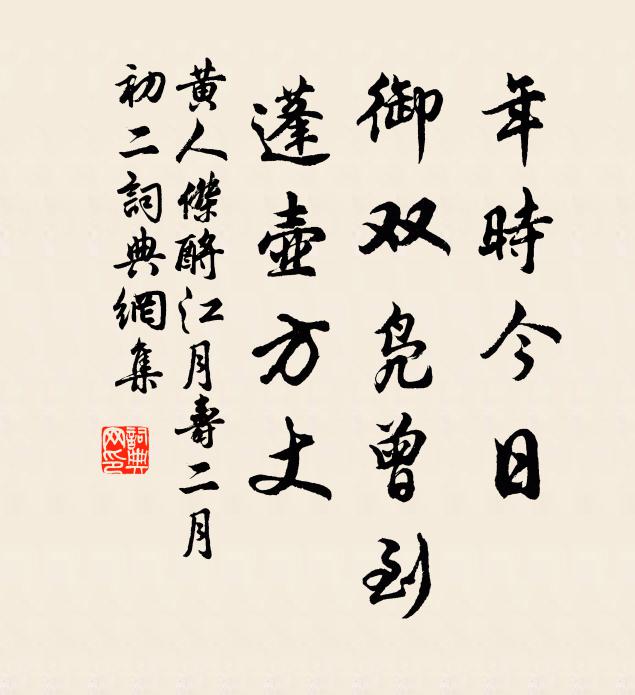 年時今日
御双凫曾到
蓬壺方丈
黄人傑酹江月壽二月
初二詞典網集
詞典
网印